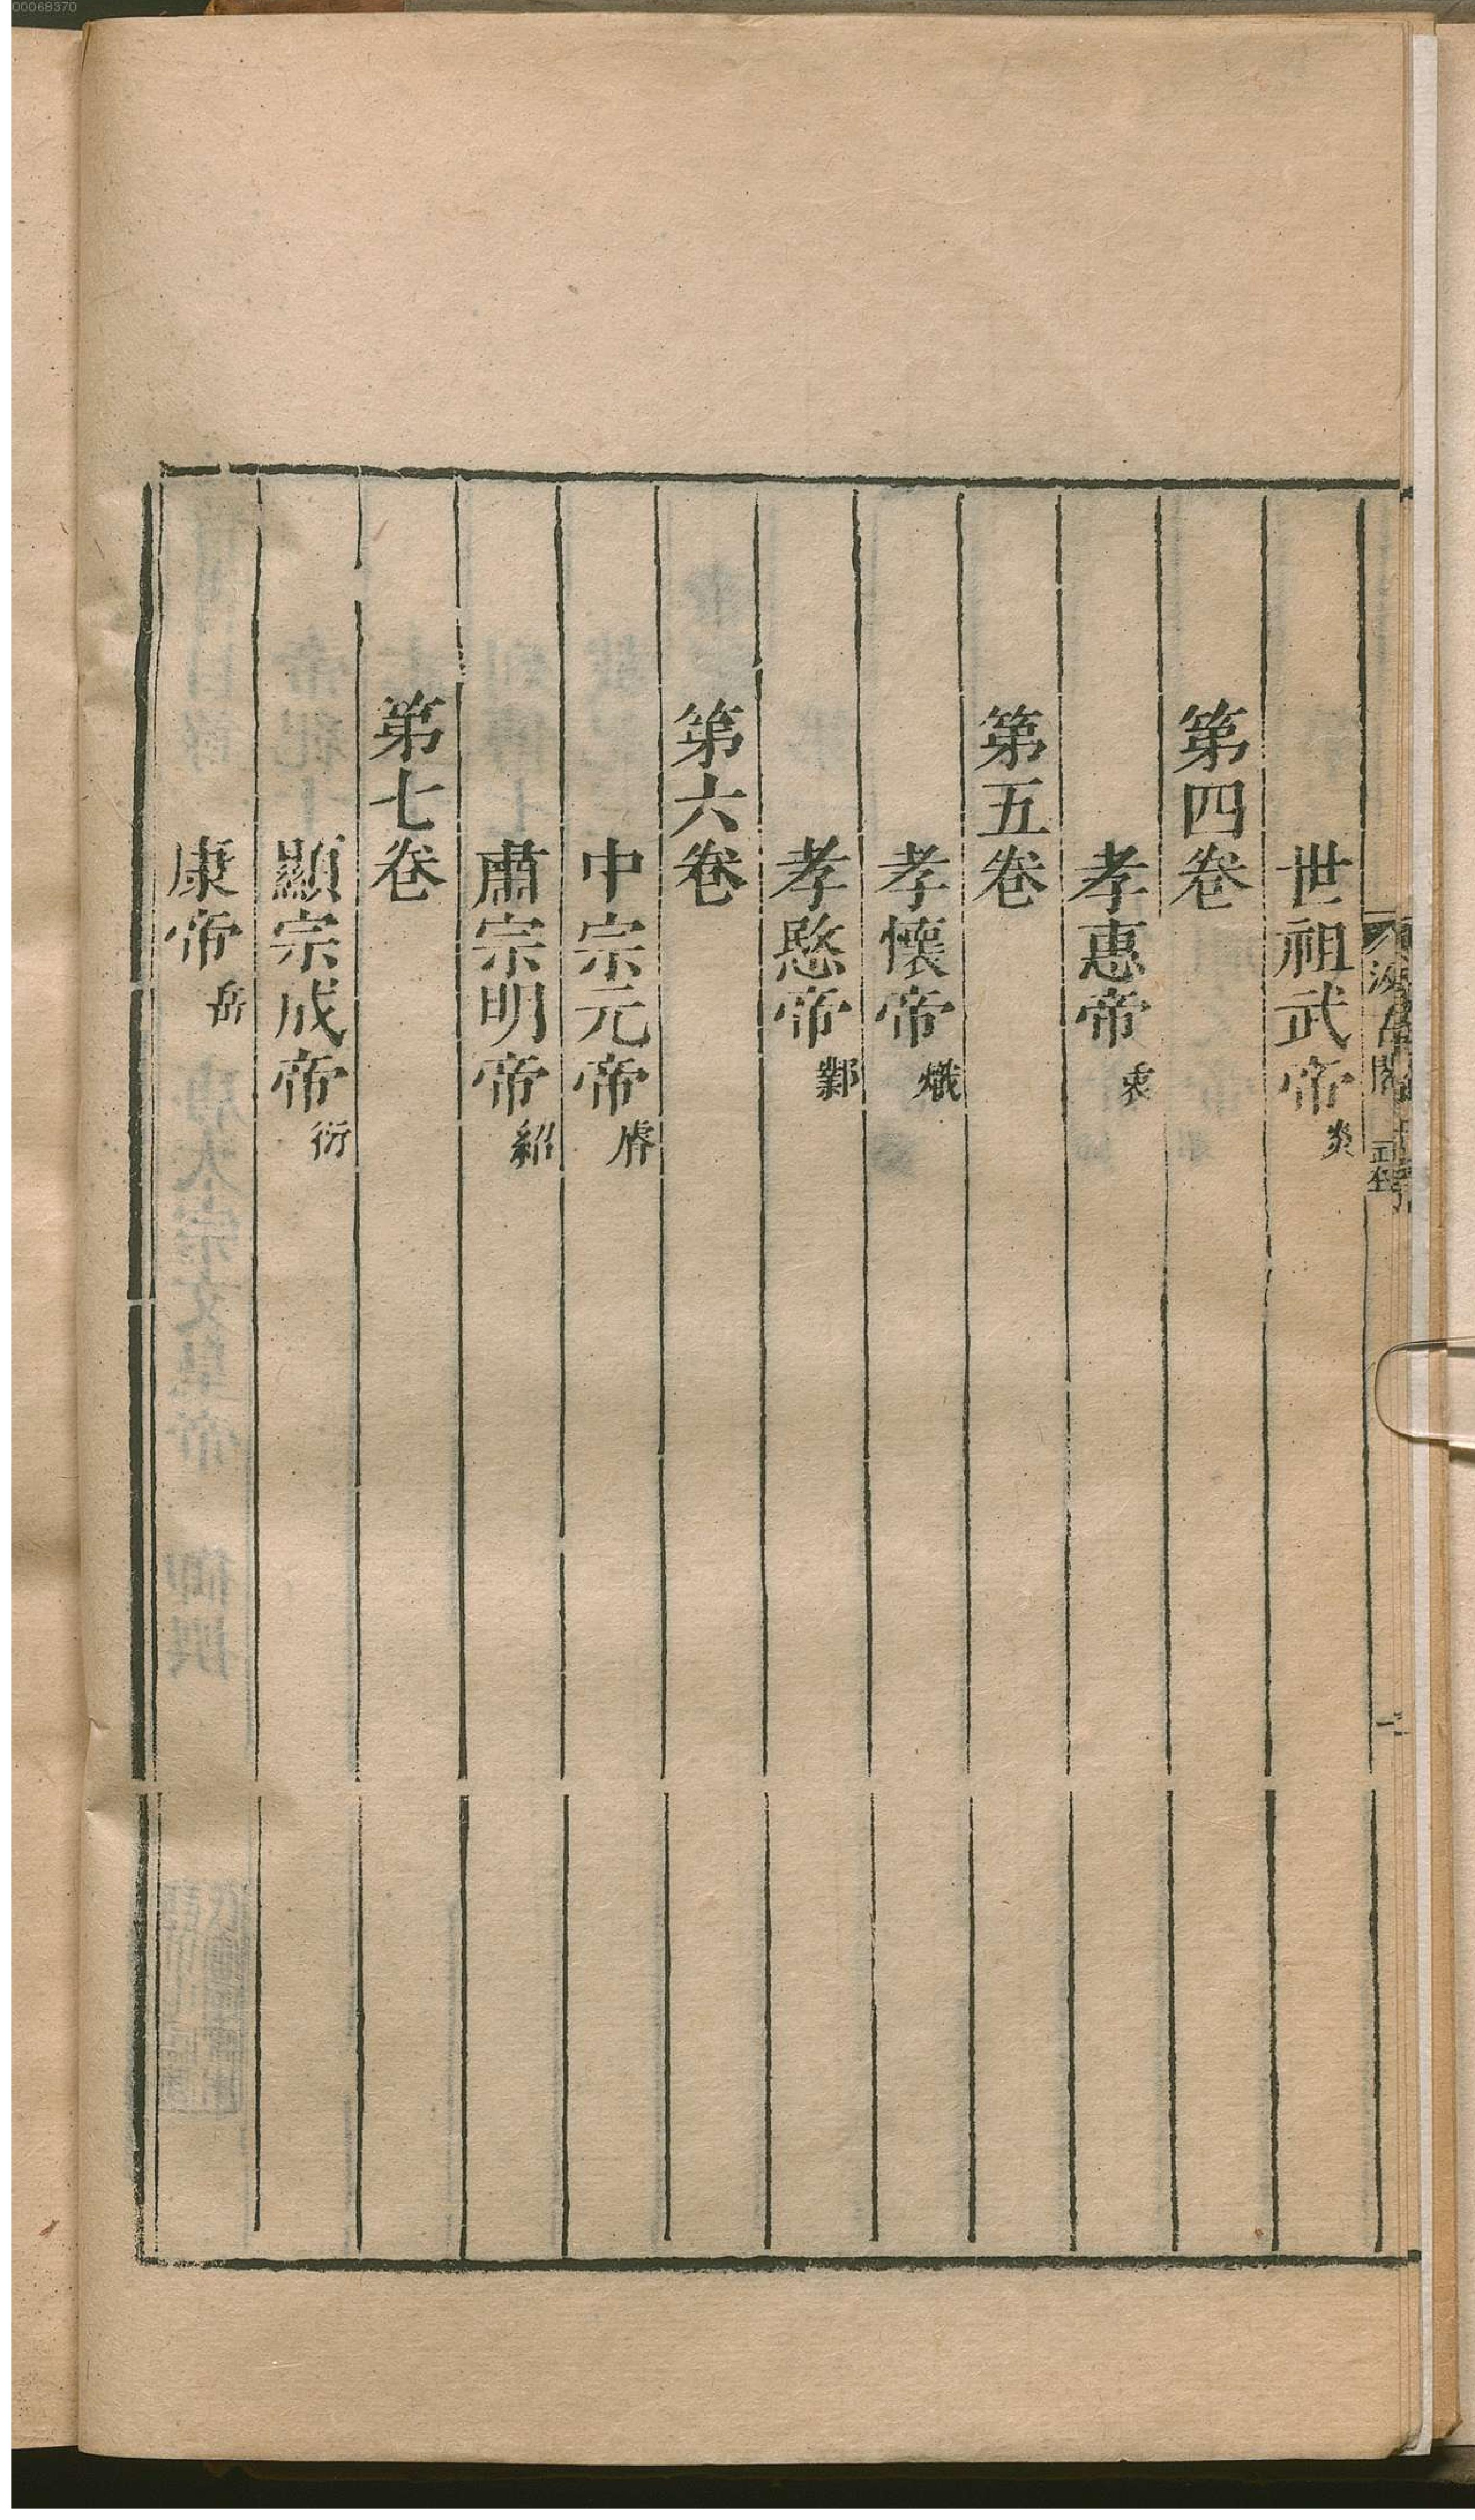 00068370
世祖武帝炎
第四卷
孝惠帝衷
第五卷
孝懷帝熾
孝愍帝鄴
第六卷
中宗元帝睿
肅宗明帝紹
第七卷
顯宗成帝衍
康帝岳